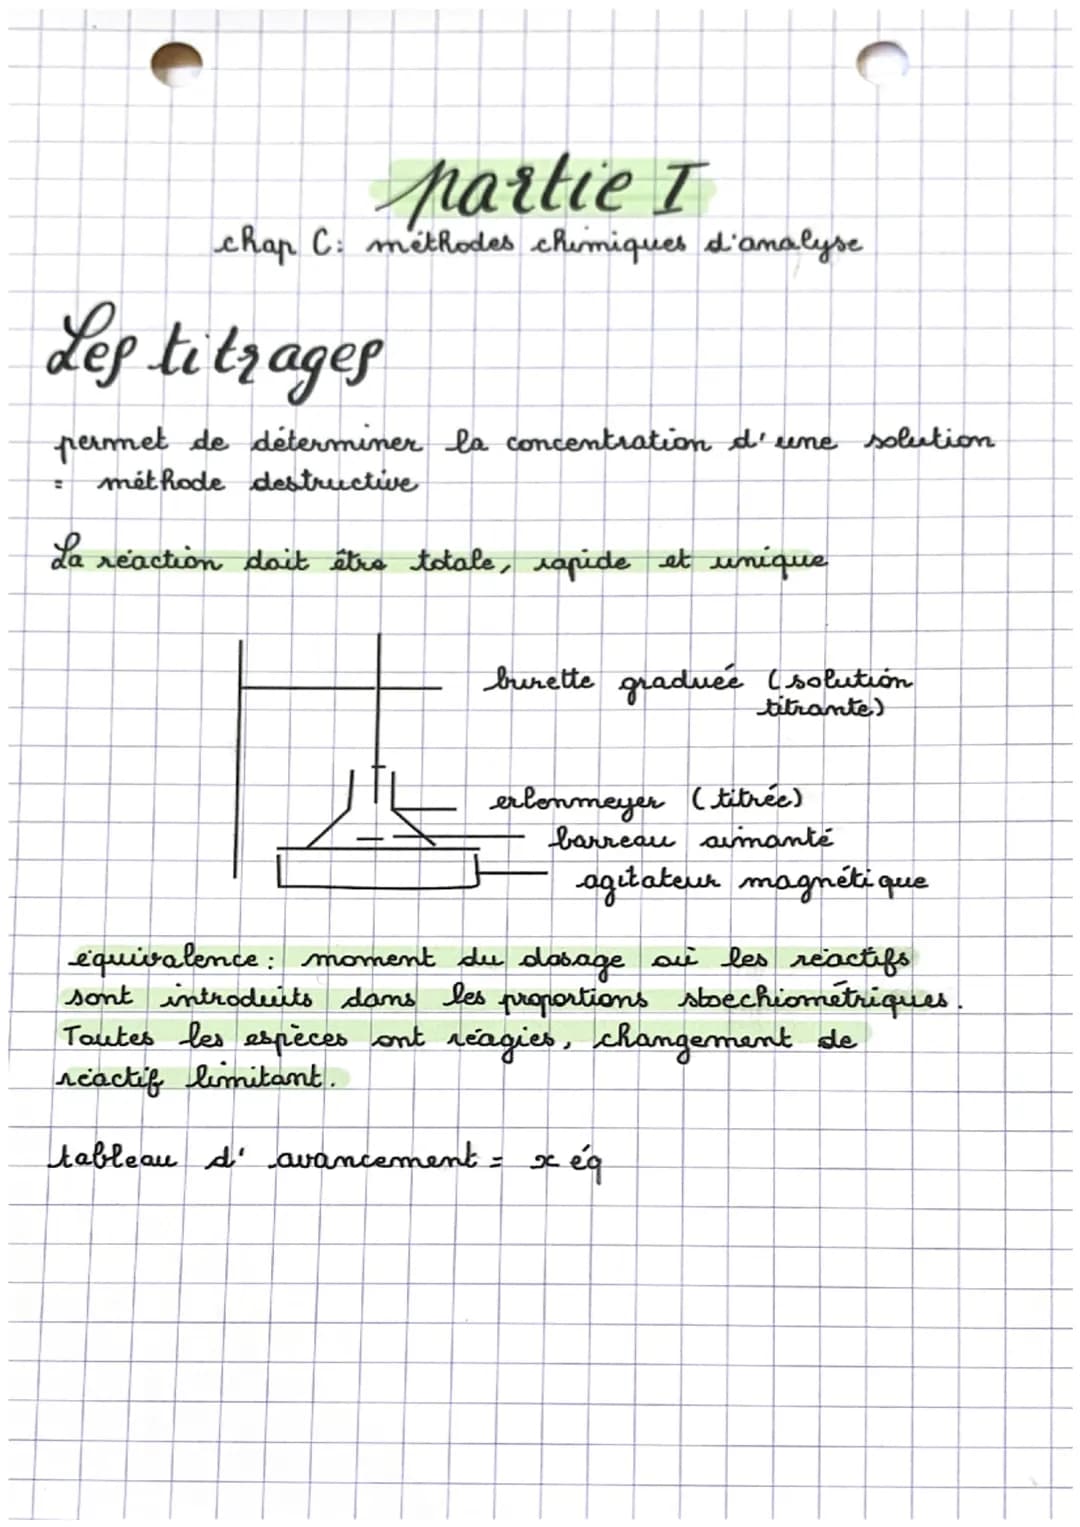 partie I
chap C: méthodes chimiques d'analyse
Les titrages
permet de déterminer la concentration d'une solution
= méthode destructive
La réaction doit être totale, rapide et unique
burette graduée (solution
titrante)
erlenmeyer (titrée)
barreau aimanté
agitateur magnétique
équivalence : moment du dosage où les réactifs
sont introduits dans les proportions stoechiométriques.
Toutes les espèces ont réagies, changement de
réactif limitant.
tableau d'avancement = x éq